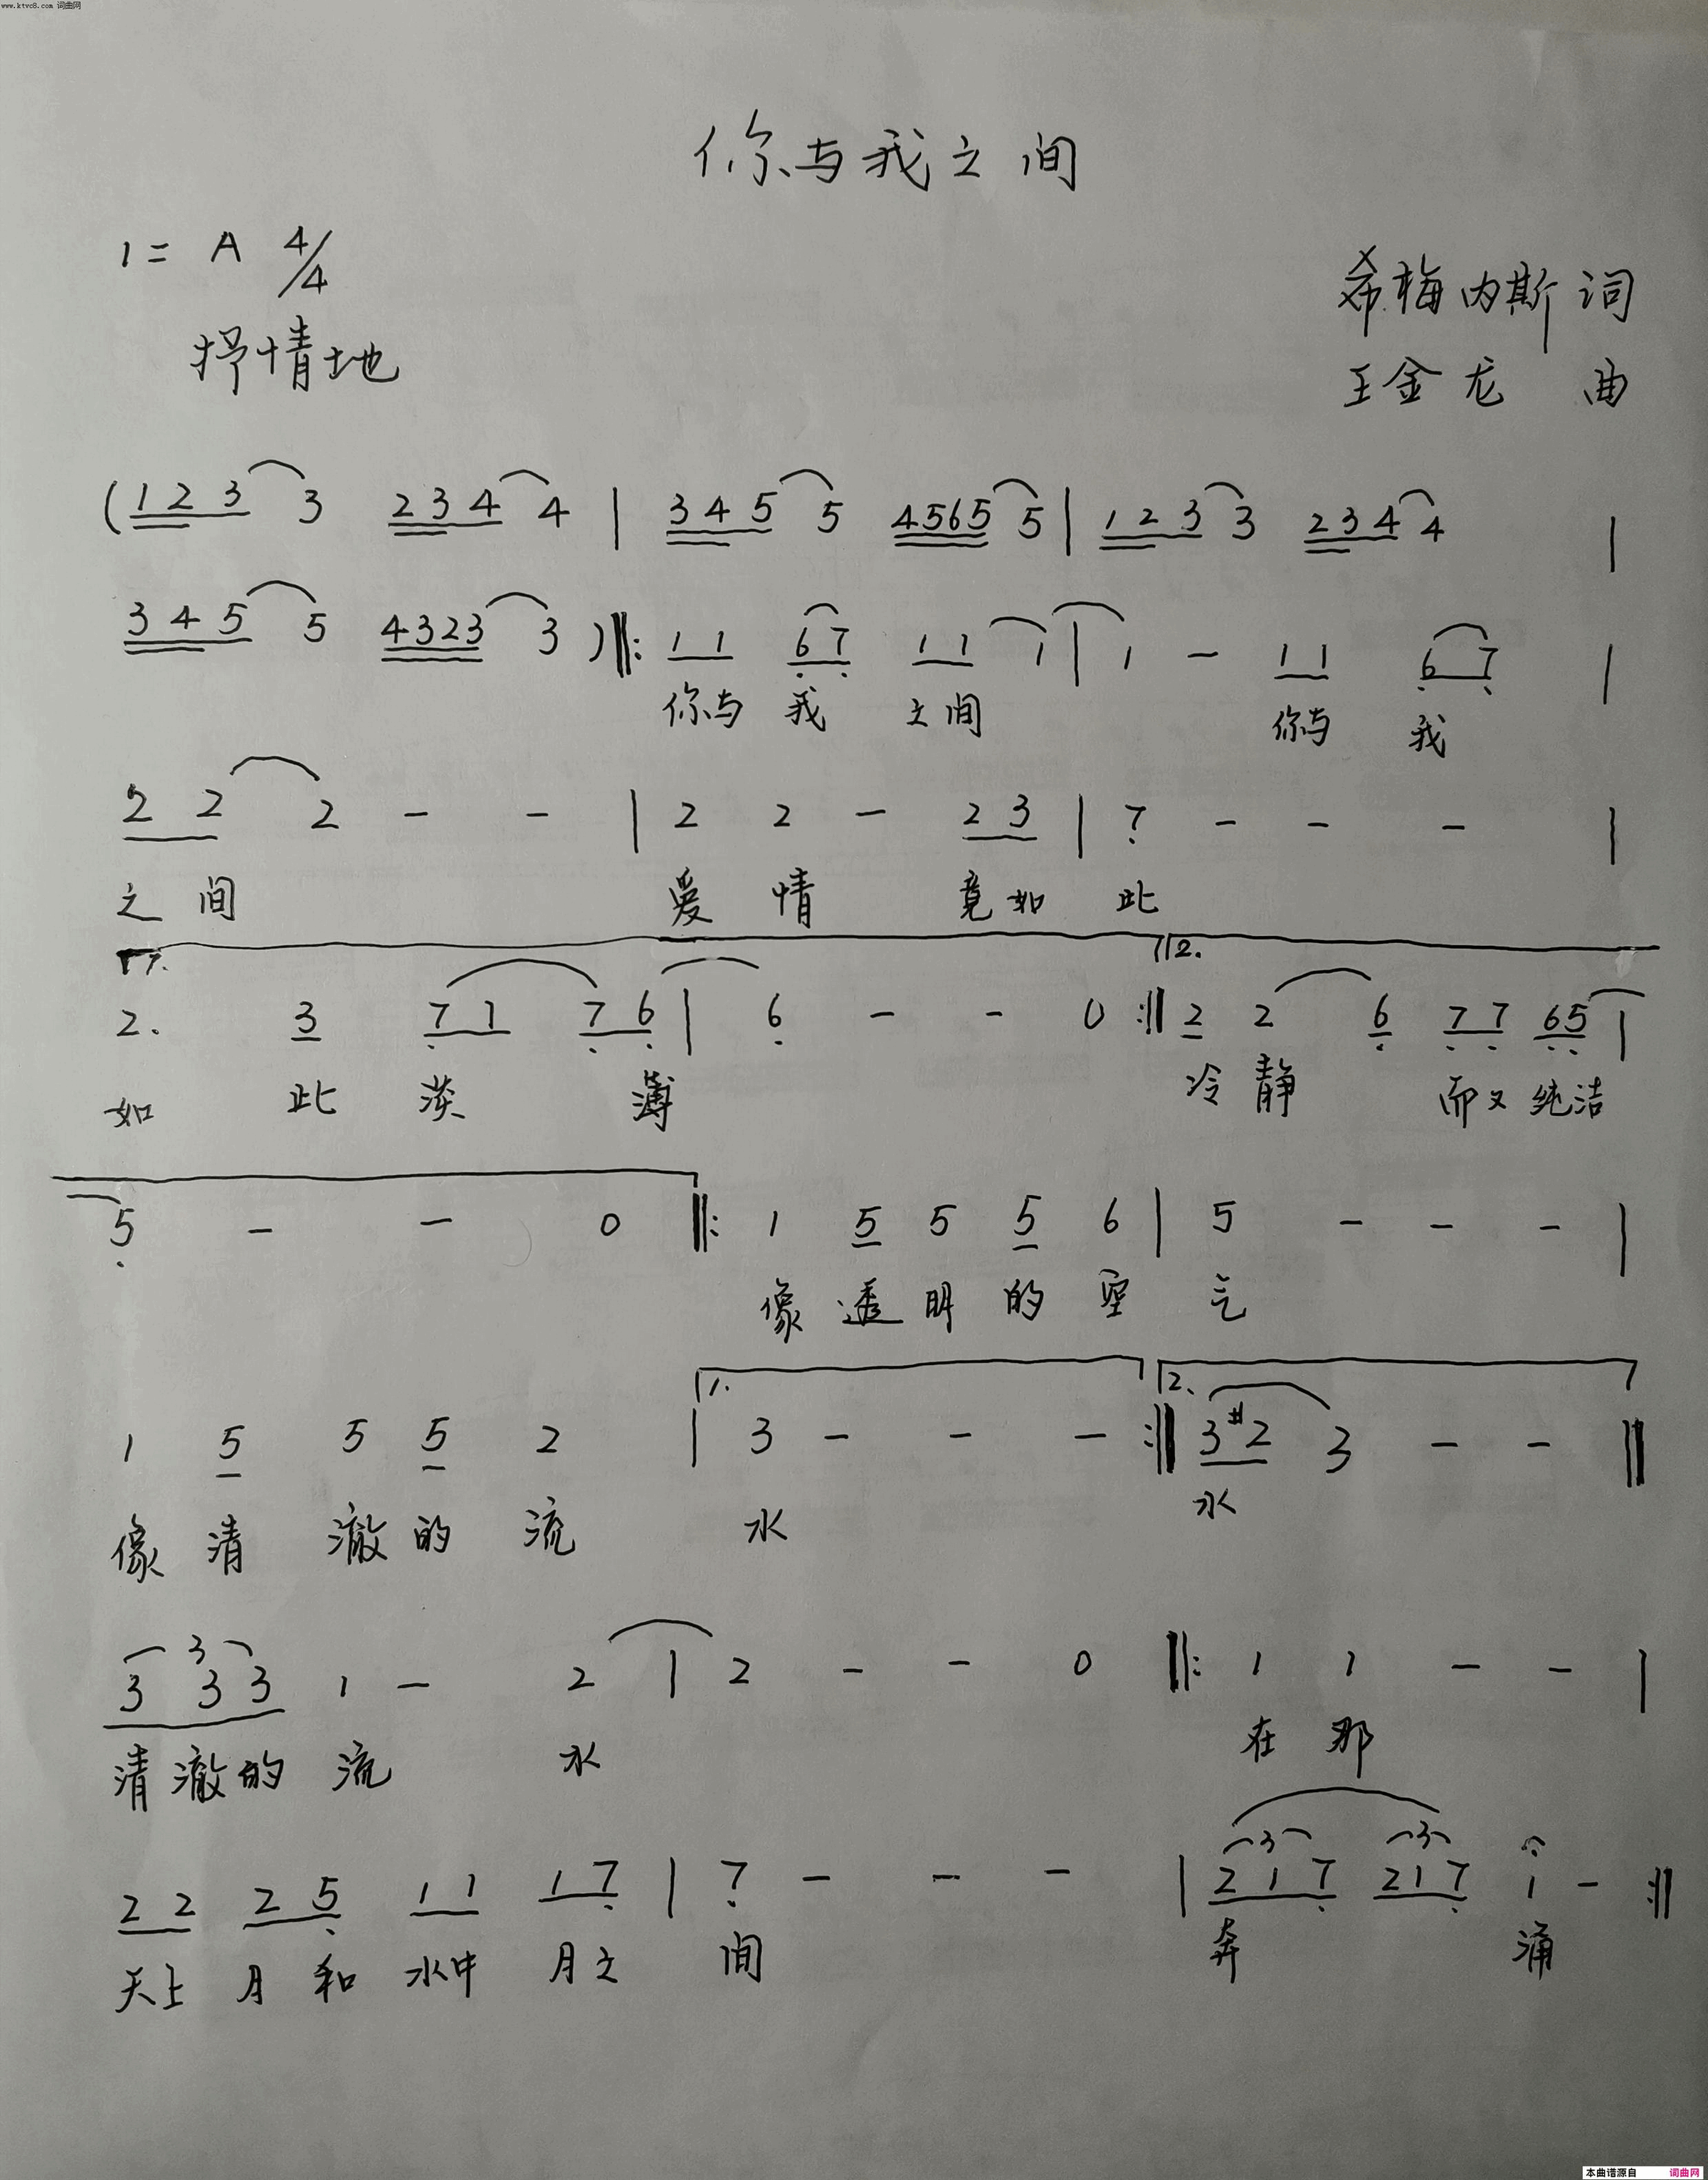 www.ktvc8.com 词曲网
你与我之间
1= A 4/4
希梅内斯 词
抒情地
王金龙 曲
(1 2 3 3 2 3 4 4 | 3 4 5 5 4565 5 | 1 2 3 3 2 3 4 4 |
3 4 5 5 4323 3 )‖: 1 1 6 7 1 1 1 | 1 - 1 1 6 7 |
你与 我 之间 你与 我
2 2 2 - - | 2 2 - 2 3 | 7 - - - |
之 间 爱 情 竟如 此
1. 2.
2. 3 7 1 7 6 | 6 - - 0 :‖ 2 2 6 7 7 65 |
如 此 淡 薄 冷 静 而又 纯洁
5 - - 0 ‖: 1 5 5 5 6 | 5 - - - |
像 透 明 的 空 气
1. 2.
1 5 5 5 2 | 3 - - - :‖ 3 #2 3 - - ‖
像 清 澈 的 流 水 水
3
3 3 3 1 - 2 | 2 - - 0 ‖: 1 1 - - |
清 澈 的 流 水 在 那
3 3
2 2 2 5 1 1 1 7 | 7 - - - | 2 1 7 2 1 7 1 - :‖
天上 月 和 水中 月之 间 奔 涌
本曲谱源自 词曲网